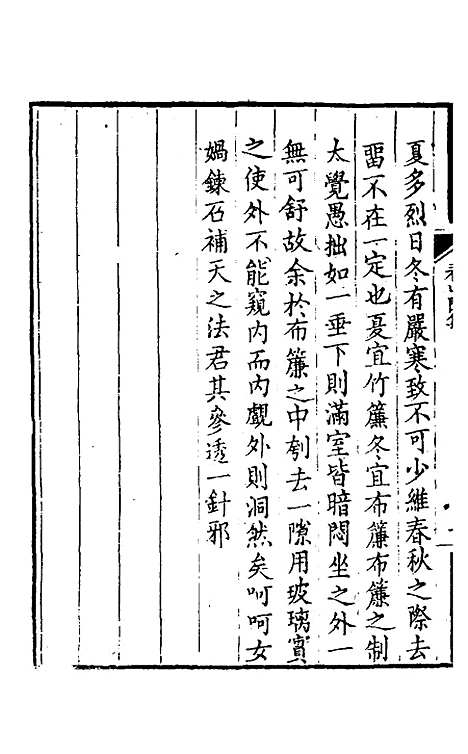 夏多烈日冬有嚴寒致不可少維春秋之際去
畱不在一定也夏宜竹簾冬宜布簾布簾之制
太覺愚拙如一垂下則滿室皆暗悶坐之外一
無可舒故余於布簾之中刳去一隙用玻璃實
之使外不能窺內而內覷外則洞然矣呵呵女
媧鍊石補天之法君其參透一針邪